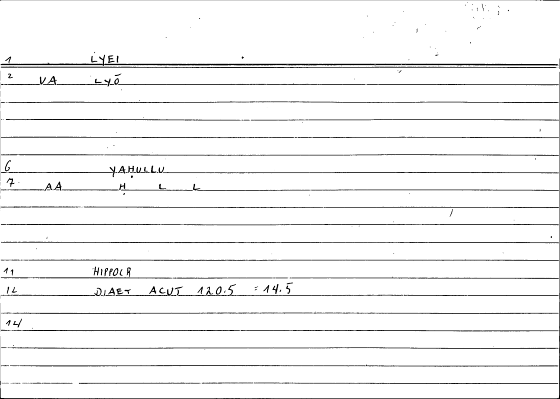 1 LYEI
2 VA LYŌ
6 YAḤULLU
7 AA Ḥ L L
11 HIPPOCR
12 DIAET ACUT 120.5 =14.5
14